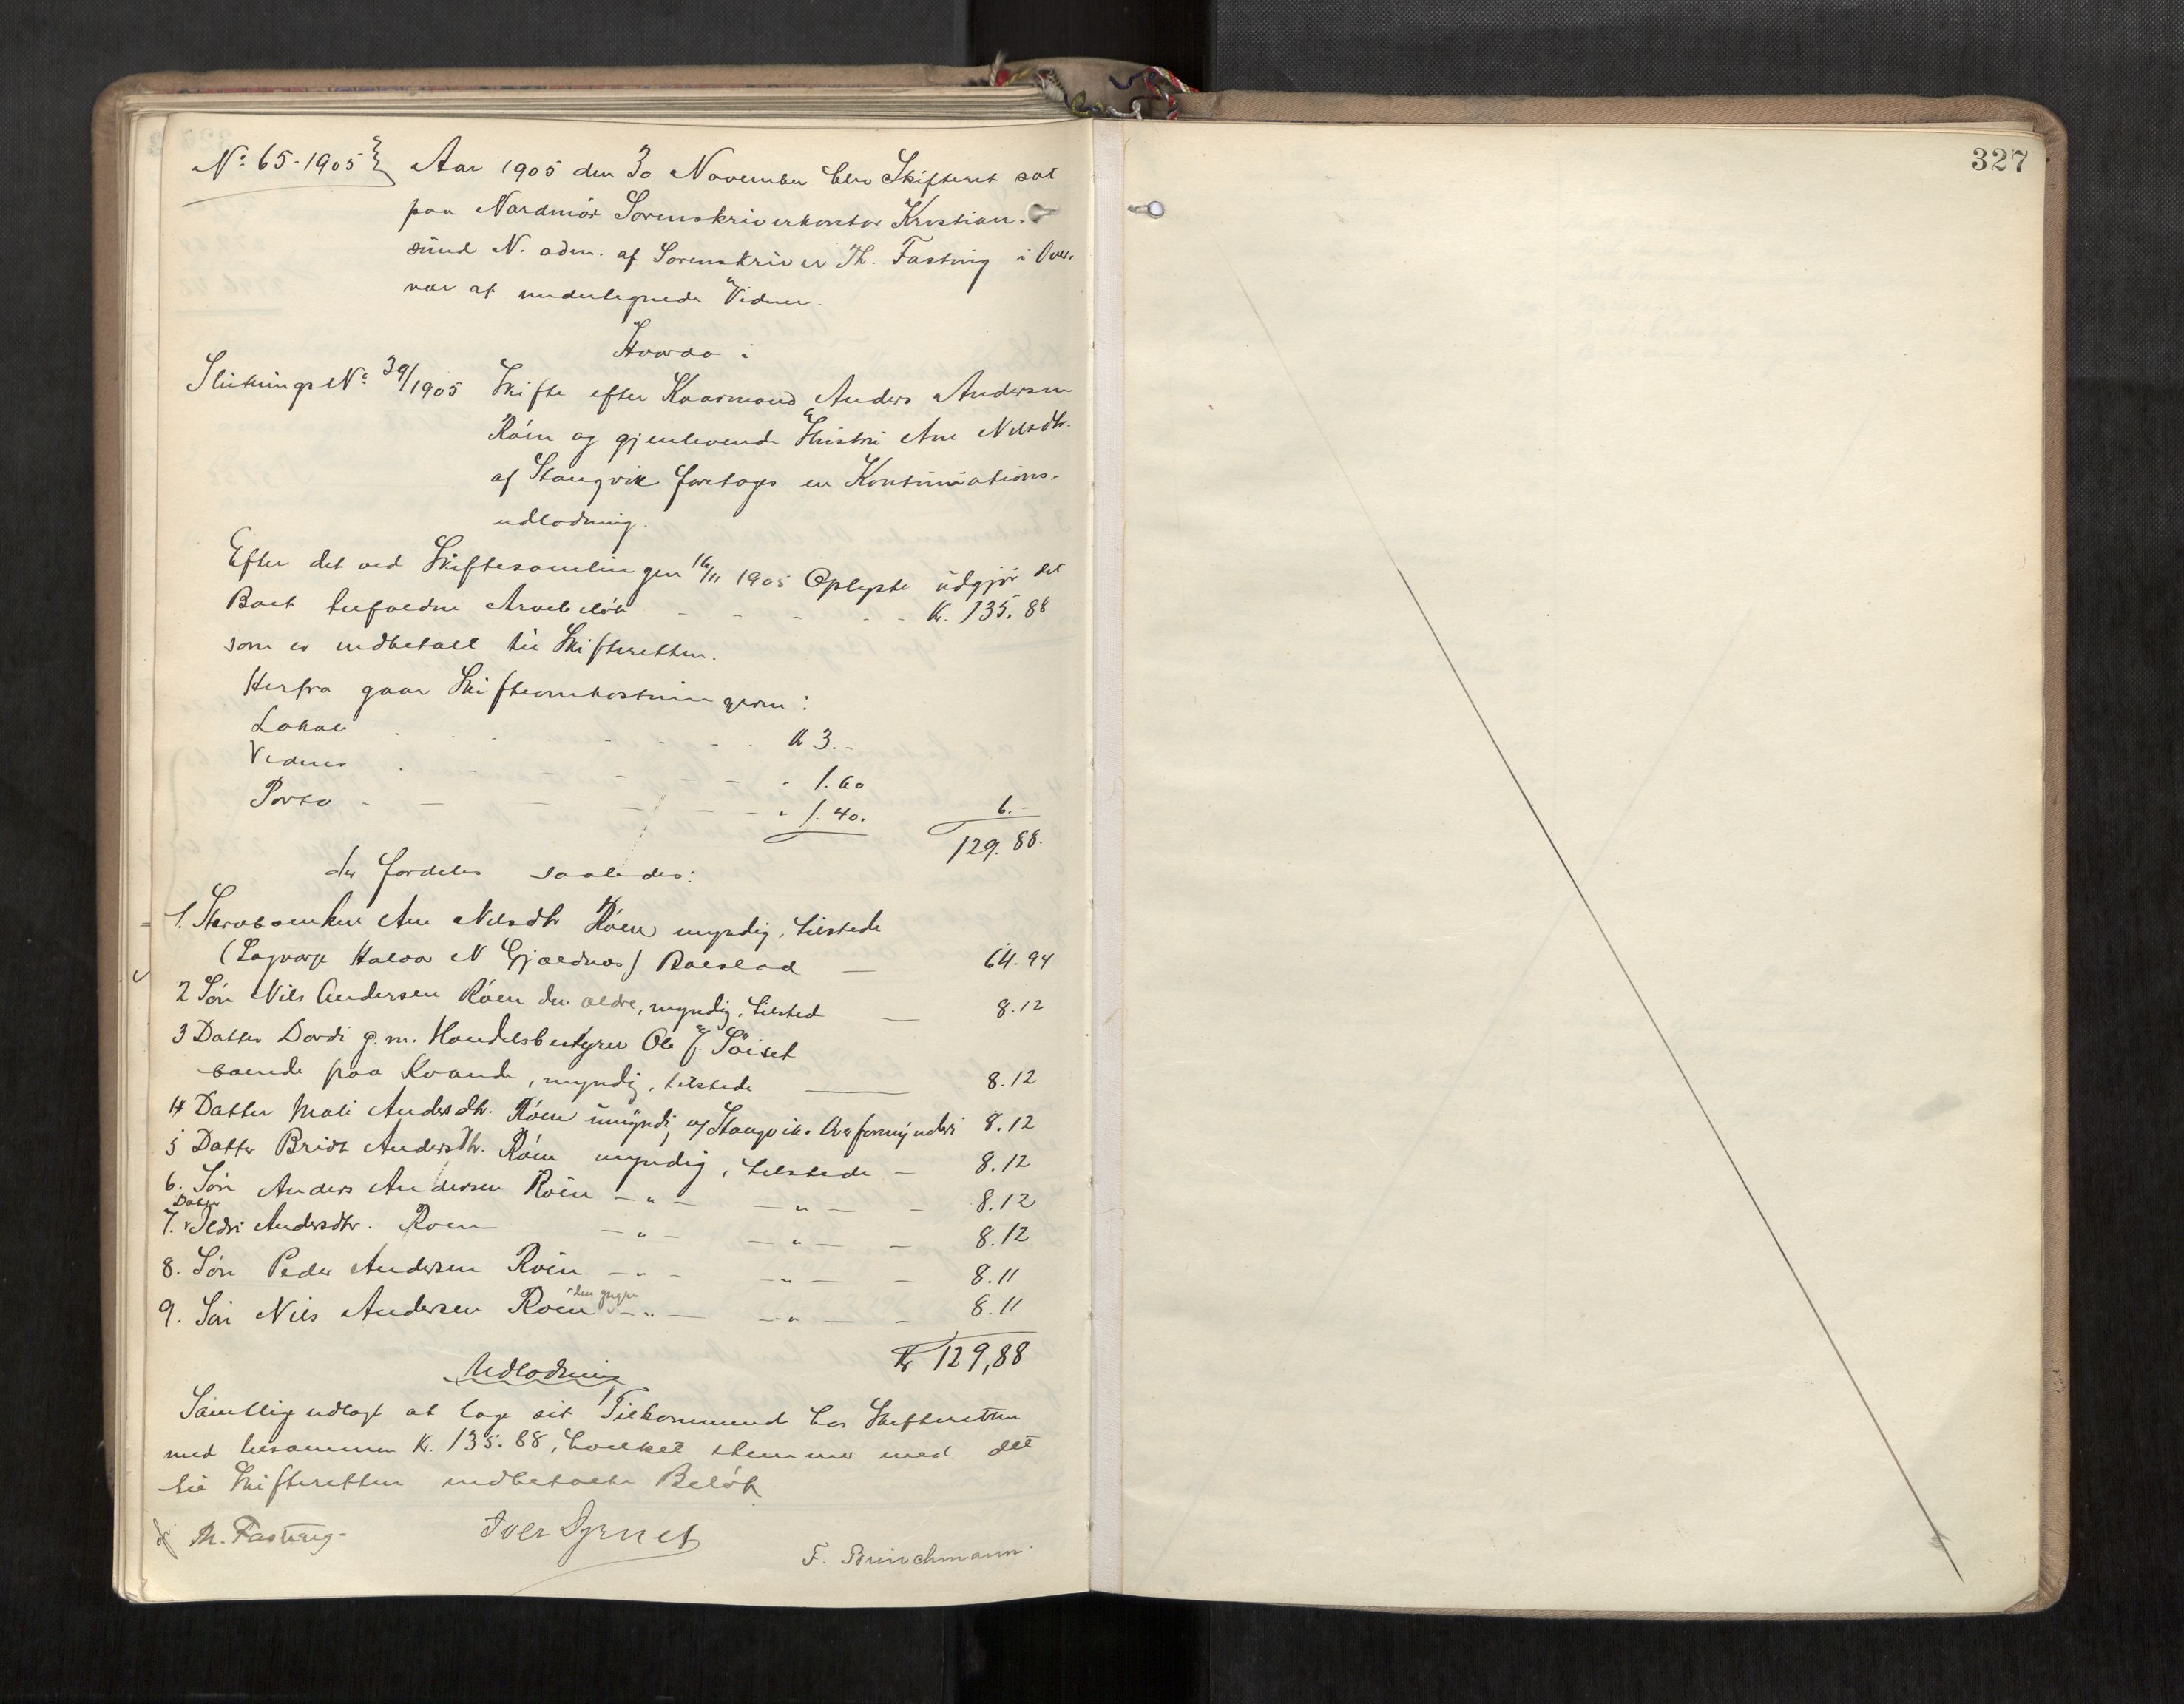 327
No 65-1905 Aar 1905 den 30 November blev Skifteret sat
paa Nordmör Sorenskriverkontor Kristian-
sund N. adm. af Sorenskriver Th. Fasting i Over-
vær af undertegnede Vidner.
Hvorda:
Slutnings No 39/1905 Skifte efter Kaarmand Anders Andersen
Röen og gjenlevende Hustru Ane Nilsdtr.
af Stangvik foretages en Kontinuations-
udlodning.
Efter det ved Skiftesamlingen 16/11 1905 Oplyste udgjör det
Boet tilfaldne Arvebelöb - - - - Kr. 135.88
som er indbetalt til Skifteretten.
Herfra gaar Skifteomkostningerne:
Lokale K 3.-
Vidner - - - - - " 1.60
Porto - - - - - " 1.40. 6.-
129.88.
der fordeles saaledes:
1. Ane Nilsdtr Röen myndig, tilstede
(Lagværge Halvor N Gjeldnes) Boeslod — 64.94
2 Sön Nils Andersen Röen den ældre, myndig, tilsted — 8.12
3 Datter Dordi g. m. Handelsbestyrer Ole J. Söiset
boende paa Kvande, myndig, tilstede — 8.12
4 Datter Mali Andersdtr. Röen umyndig u/ Stangvik Overformynderi 8.12
5 Datter Bridt Andersdtr. Röen myndig, tilstede — 8.12
6. Sön Anders Andersen Röen — " — — " — — 8.12
Datter
7. Sedri Andersdtr. Roen — " — — " — — 8.12
8. Sön Peder Andersen Röen — " — — " — — 8.11
9. Sön Nils Andersen Roen den yngre — " — — " — — 8.11
Kr 129,88
Udlodning
Samtlige udlagt at tage sit Tilkommende hos Skifteretten
med tilsammen Kr. 135.88, hvilket stemmer med det
til Skifteretten indbetalte Belöb
Th. Fasting. Iver Syrnet F. Brinchmann.